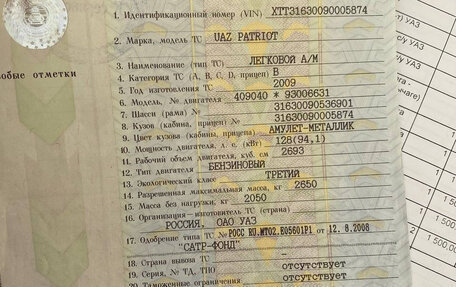 1. Идентификационный номер (VIN) XTT31630090005874
2. Марка, модель ТС UAZ PATRIOT
3. Наименование (тип ТС) ЛЕГКОВОЙ А/М
4. Категория ТС (A, B, C, D, прицеп) B
5. Год изготовления ТС 2009
6. Модель, № двигателя 409040 * 93006631
7. Шасси (рама) № 31630090536901
8. Кузов (кабина, прицеп) № 31630090005874
9. Цвет кузова (кабины, прицепа) АМУЛЕТ-МЕТАЛЛИК
10. Мощность двигателя, л. с. (кВт) 128(94,1)
11. Рабочий объем двигателя, куб. см 2693
12. Тип двигателя БЕНЗИНОВЫЙ
13. Экологический класс ТРЕТИЙ
14. Разрешенная максимальная масса, кг 2650
15. Масса без нагрузки, кг 2050
16. Организация—изготовитель ТС (страна)
РОССИЯ, ОАО УАЗ
17. Одобрение типа ТС № РОСС RU.MT02.E05601P1 от 12.8.2008
"САТР-ФОНД"
18. Страна вывоза ТС -
19. Серия, № ТД, ТПО отсутствует
20. Таможенные ограничения отсутствует
обые отметки
о УАЗ
су УАЗ
су УАЗ
1 500
1 500.